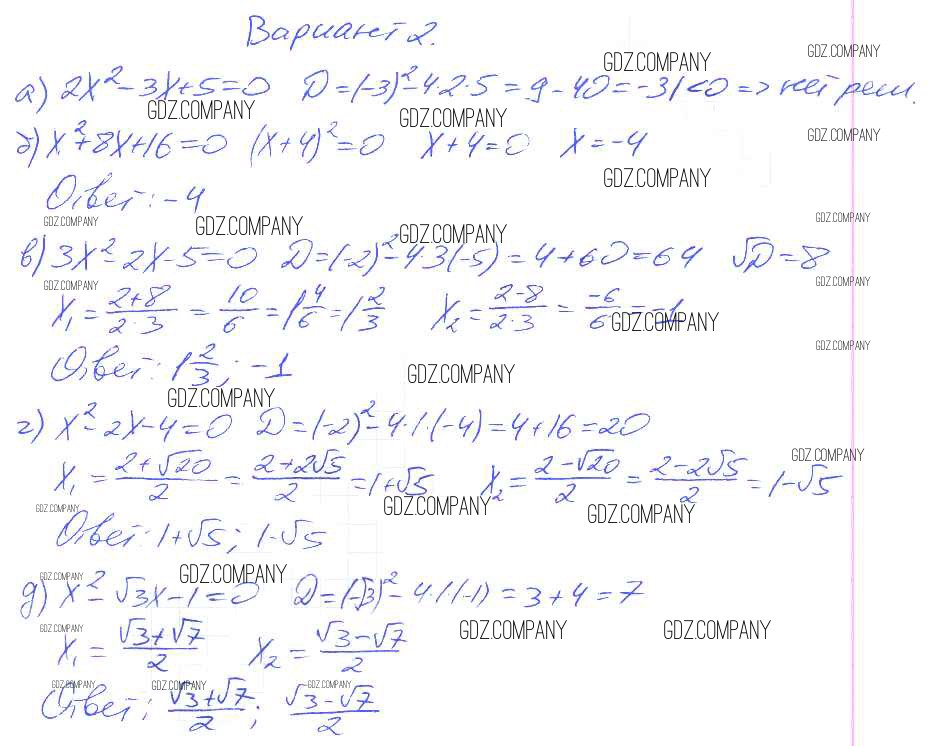 Вариант 2.
GDZ.COMPANY GDZ.COMPANY
а) 2x² - 3x + 5 = 0 D = (-3)² - 4·2·5 = 9 - 40 = -31 < 0 => нет реш.
GDZ.COMPANY GDZ.COMPANY GDZ.COMPANY
б) x² + 8x + 16 = 0 (x + 4)² = 0 x + 4 = 0 x = -4
GDZ.COMPANY
Ответ: -4
GDZ.COMPANY GDZ.COMPANY GDZ.COMPANY GDZ.COMPANY
в) 3x² - 2x - 5 = 0 D = (-2)² - 4 3(-5) = 4 + 60 = 64 √D = 8
GDZ.COMPANY GDZ.COMPANY
x₁ = (2+8)/(2·3) = 10/6 = 1 4/6 = 1 2/3 x₂ = (2-8)/(2·3) = -6/6 = -1
GDZ.COMPANY GDZ.COMPANY
Ответ: 1 2/3; -1
GDZ.COMPANY GDZ.COMPANY
г) x² - 2x - 4 = 0 D = (-2)² - 4·1·(-4) = 4 + 16 = 20
GDZ.COMPANY
x₁ = (2+√20)/2 = (2+2√5)/2 = 1+√5 x₂ = (2-√20)/2 = (2-2√5)/2 = 1-√5
GDZ.COMPANY GDZ.COMPANY GDZ.COMPANY
Ответ: 1+√5; 1-√5
GDZ.COMPANY GDZ.COMPANY
д) x² - √3x - 1 = 0 D = (-√3)² - 4·1·(-1) = 3 + 4 = 7
GDZ.COMPANY GDZ.COMPANY GDZ.COMPANY
x₁ = (√3+√7)/2 x₂ = (√3-√7)/2
GDZ.COMPANY GDZ.COMPANY GDZ.COMPANY
Ответ: (√3+√7)/2; (√3-√7)/2